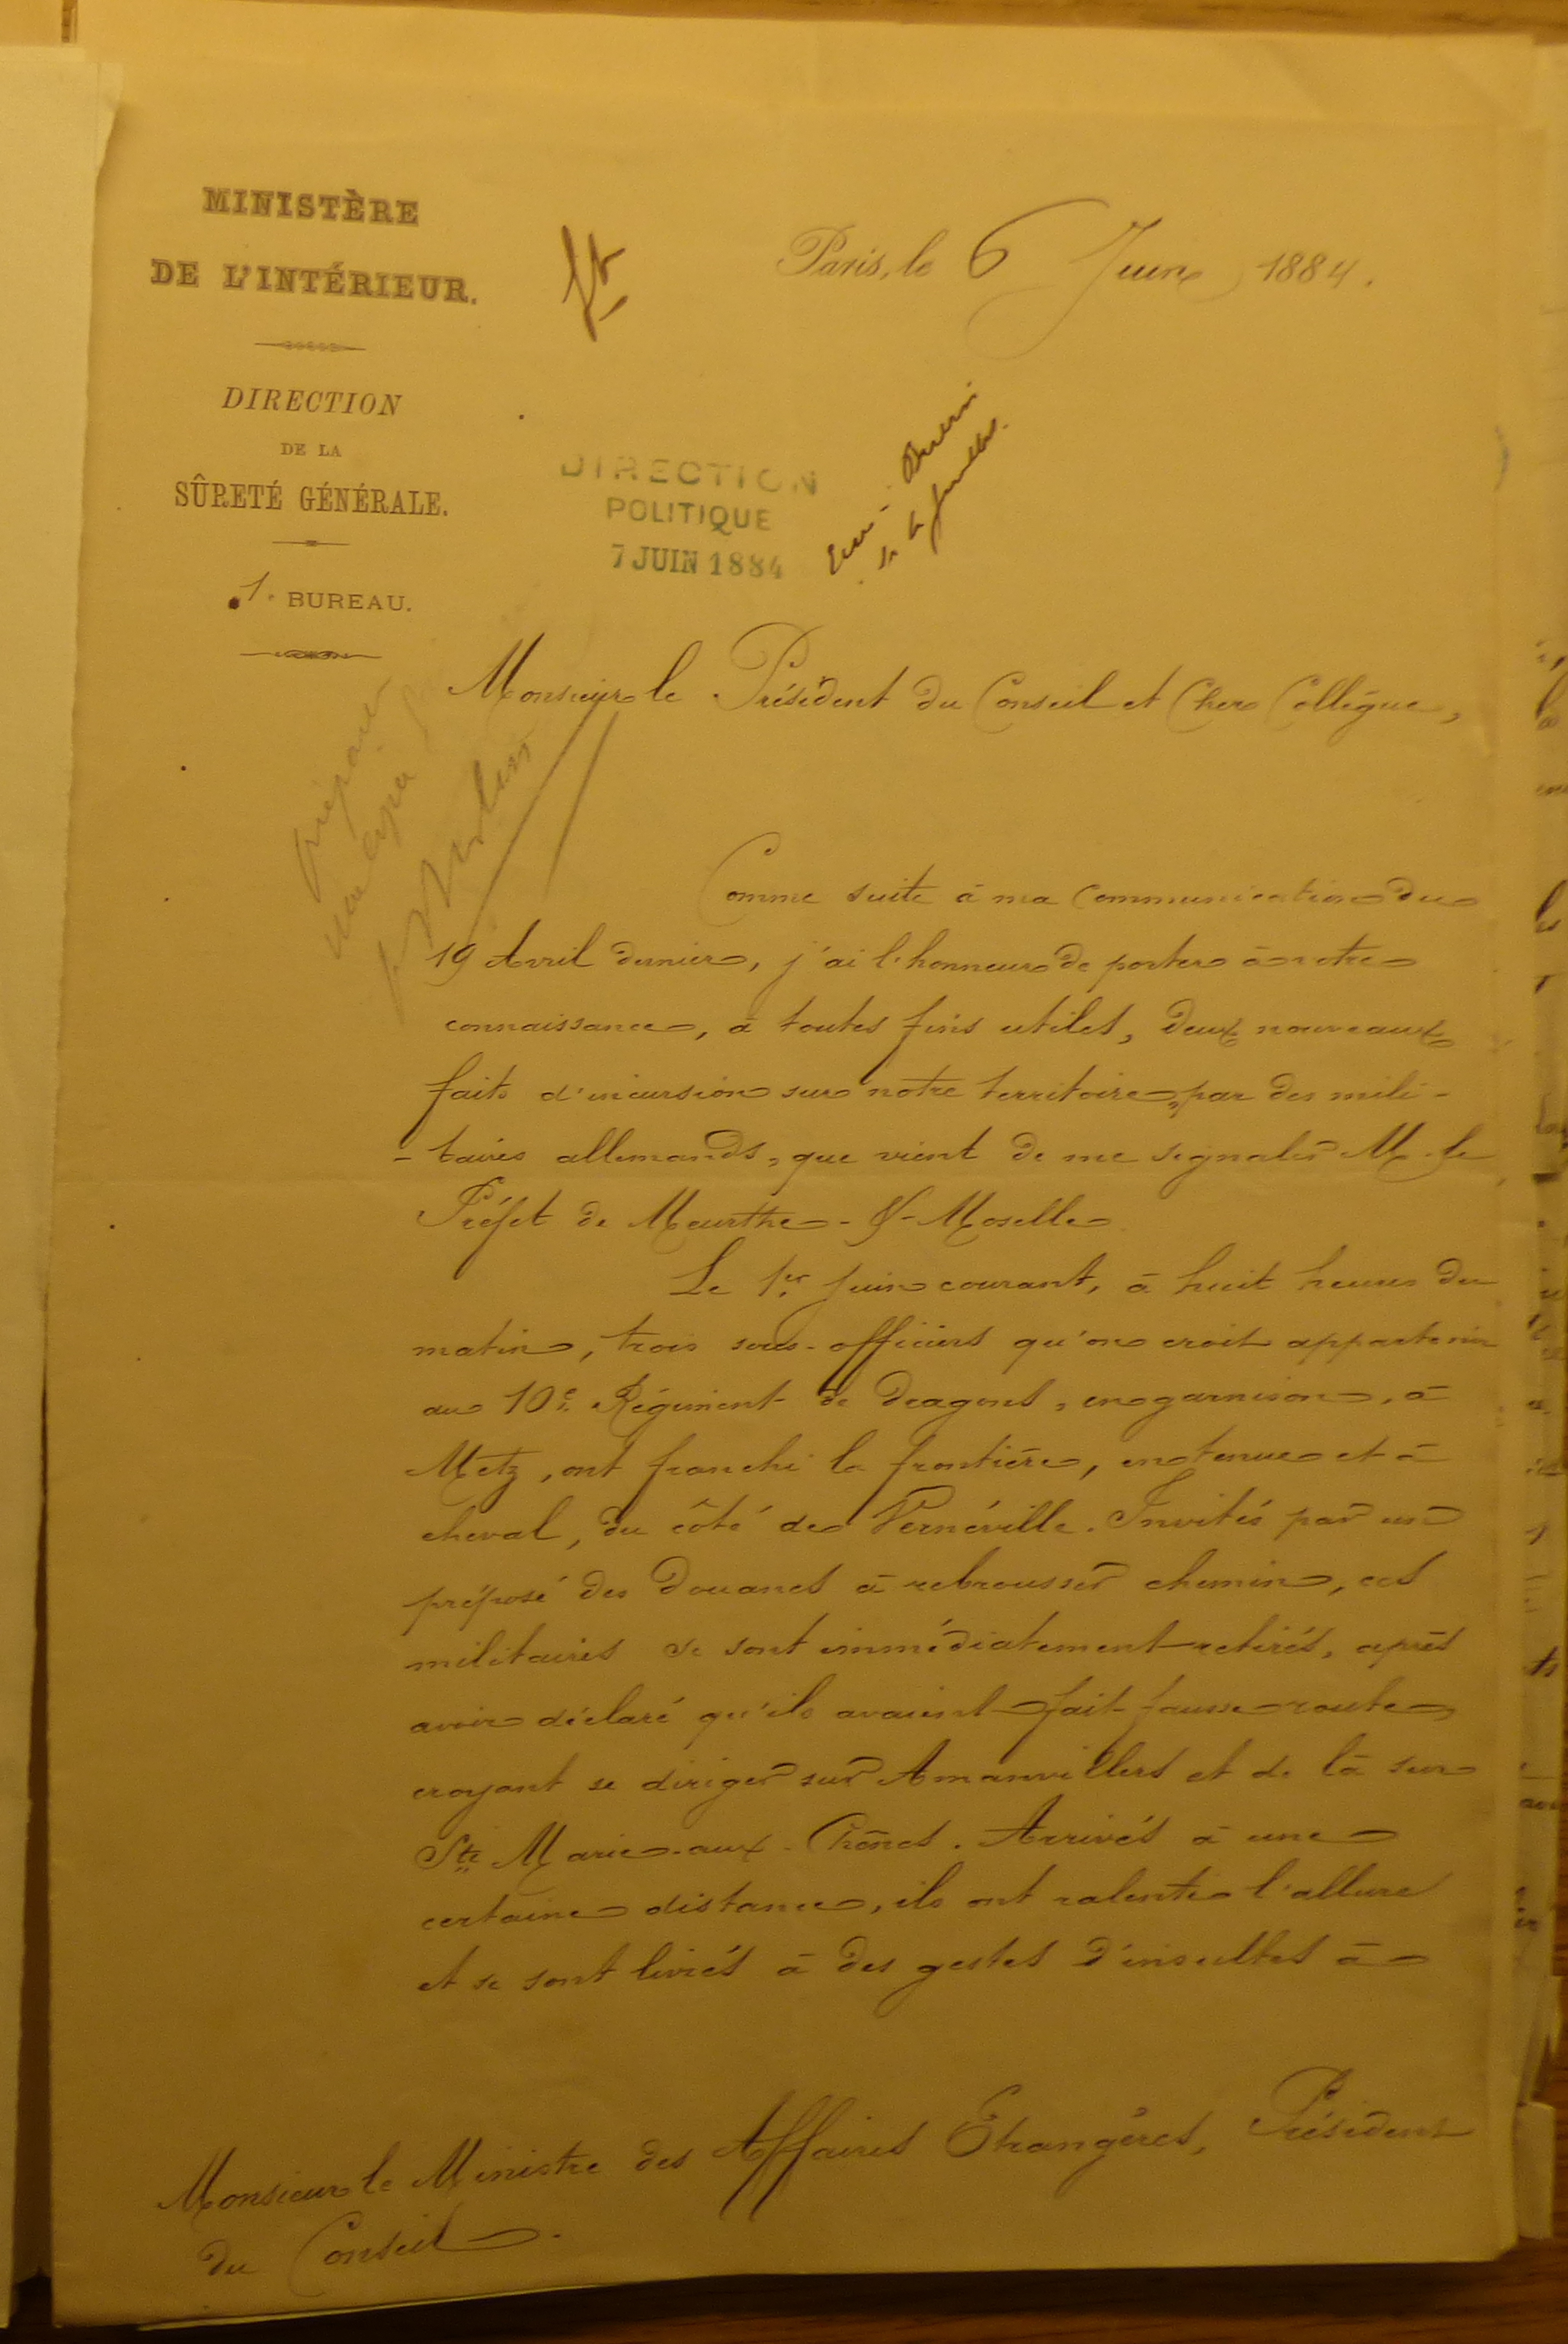 MINISTÈRE
DE L'INTÉRIEUR.
DIRECTION
DE LA
SÛRETÉ GÉNÉRALE.
1. BUREAU.
Paris, le 6 Juin 1884.
DIRECTION
POLITIQUE
7 JUIN 1884
Monsieur le Président du Conseil et Cher Collègue,
Comme suite à ma communication du
19 Avril dernier, j'ai l'honneur de porter à votre
connaissance, à toutes fins utiles, deux nouveaux
faits d'incursion sur notre territoire, par des mili-
-taires allemands, que vient de me signaler M. le
Préfet de Meurthe-&-Moselle
Le 1er Juin courant, à huit heures du
matin, trois sous-officiers qu'on croit appartenir
au 10e Régiment de dragons, en garnison, à
Metz, ont franchi la frontière, en tenue et à
cheval, du côté de Vernéville. Invités par un
préposé des Douanes à rebrousser chemin, ces
militaires se sont immédiatement retirés, après
avoir déclaré qu'ils avaient fait fausse route,
croyant se diriger sur Amanvillers et de là sur
Ste Marie-aux-Chênes. Arrivés à une
certaine distance, ils ont ralenti l'allure
et se sont livrés à des gestes d'insultes à
Monsieur le Ministre des Affaires Etrangères, Président
du Conseil.